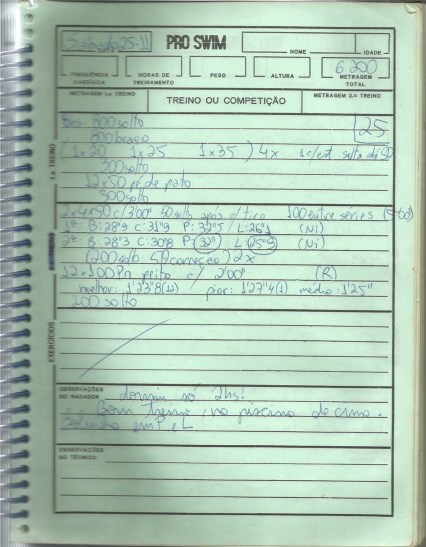 Sábado 25-11
PRO SWIM
NOME
IDADE
6200
FREQUÊNCIA CARDÍACA
HORAS DE TREINAMENTO
PESO
ALTURA
METRAGEM TOTAL
METRAGEM 1.o TREINO
TREINO OU COMPETIÇÃO
METRAGEM 2.o TREINO
800 solto
25
800 braço
(1x20 1x25 1x35) 4x 1 c/est solta de 50
300 solto
12x50 pé de pato
300 solto
2x4x50 c/ 3'00" 50 solto após c/ tiro 100 entre séries
1ª: B: 28"9 C: 31"9 P: 32"5 L: 26"1 (Ni)
2ª: B: 28"3 C: 30"8 P: 32" L: 25"9 (Ni)
(200 solto começo) 2x
12x100 Pn peito c/ 2'00" (R)
melhor: 1'23"8 (12) pior: 1'27"4 (1) média: 1'25"
200 solto
1.o TREINO
EXERCÍCIOS
OBSERVAÇÕES DO NADADOR
dormi só 2hs!
Bom treino, na piscina de cima.
Bolinha em P e L
OBSERVAÇÕES DO TÉCNICO